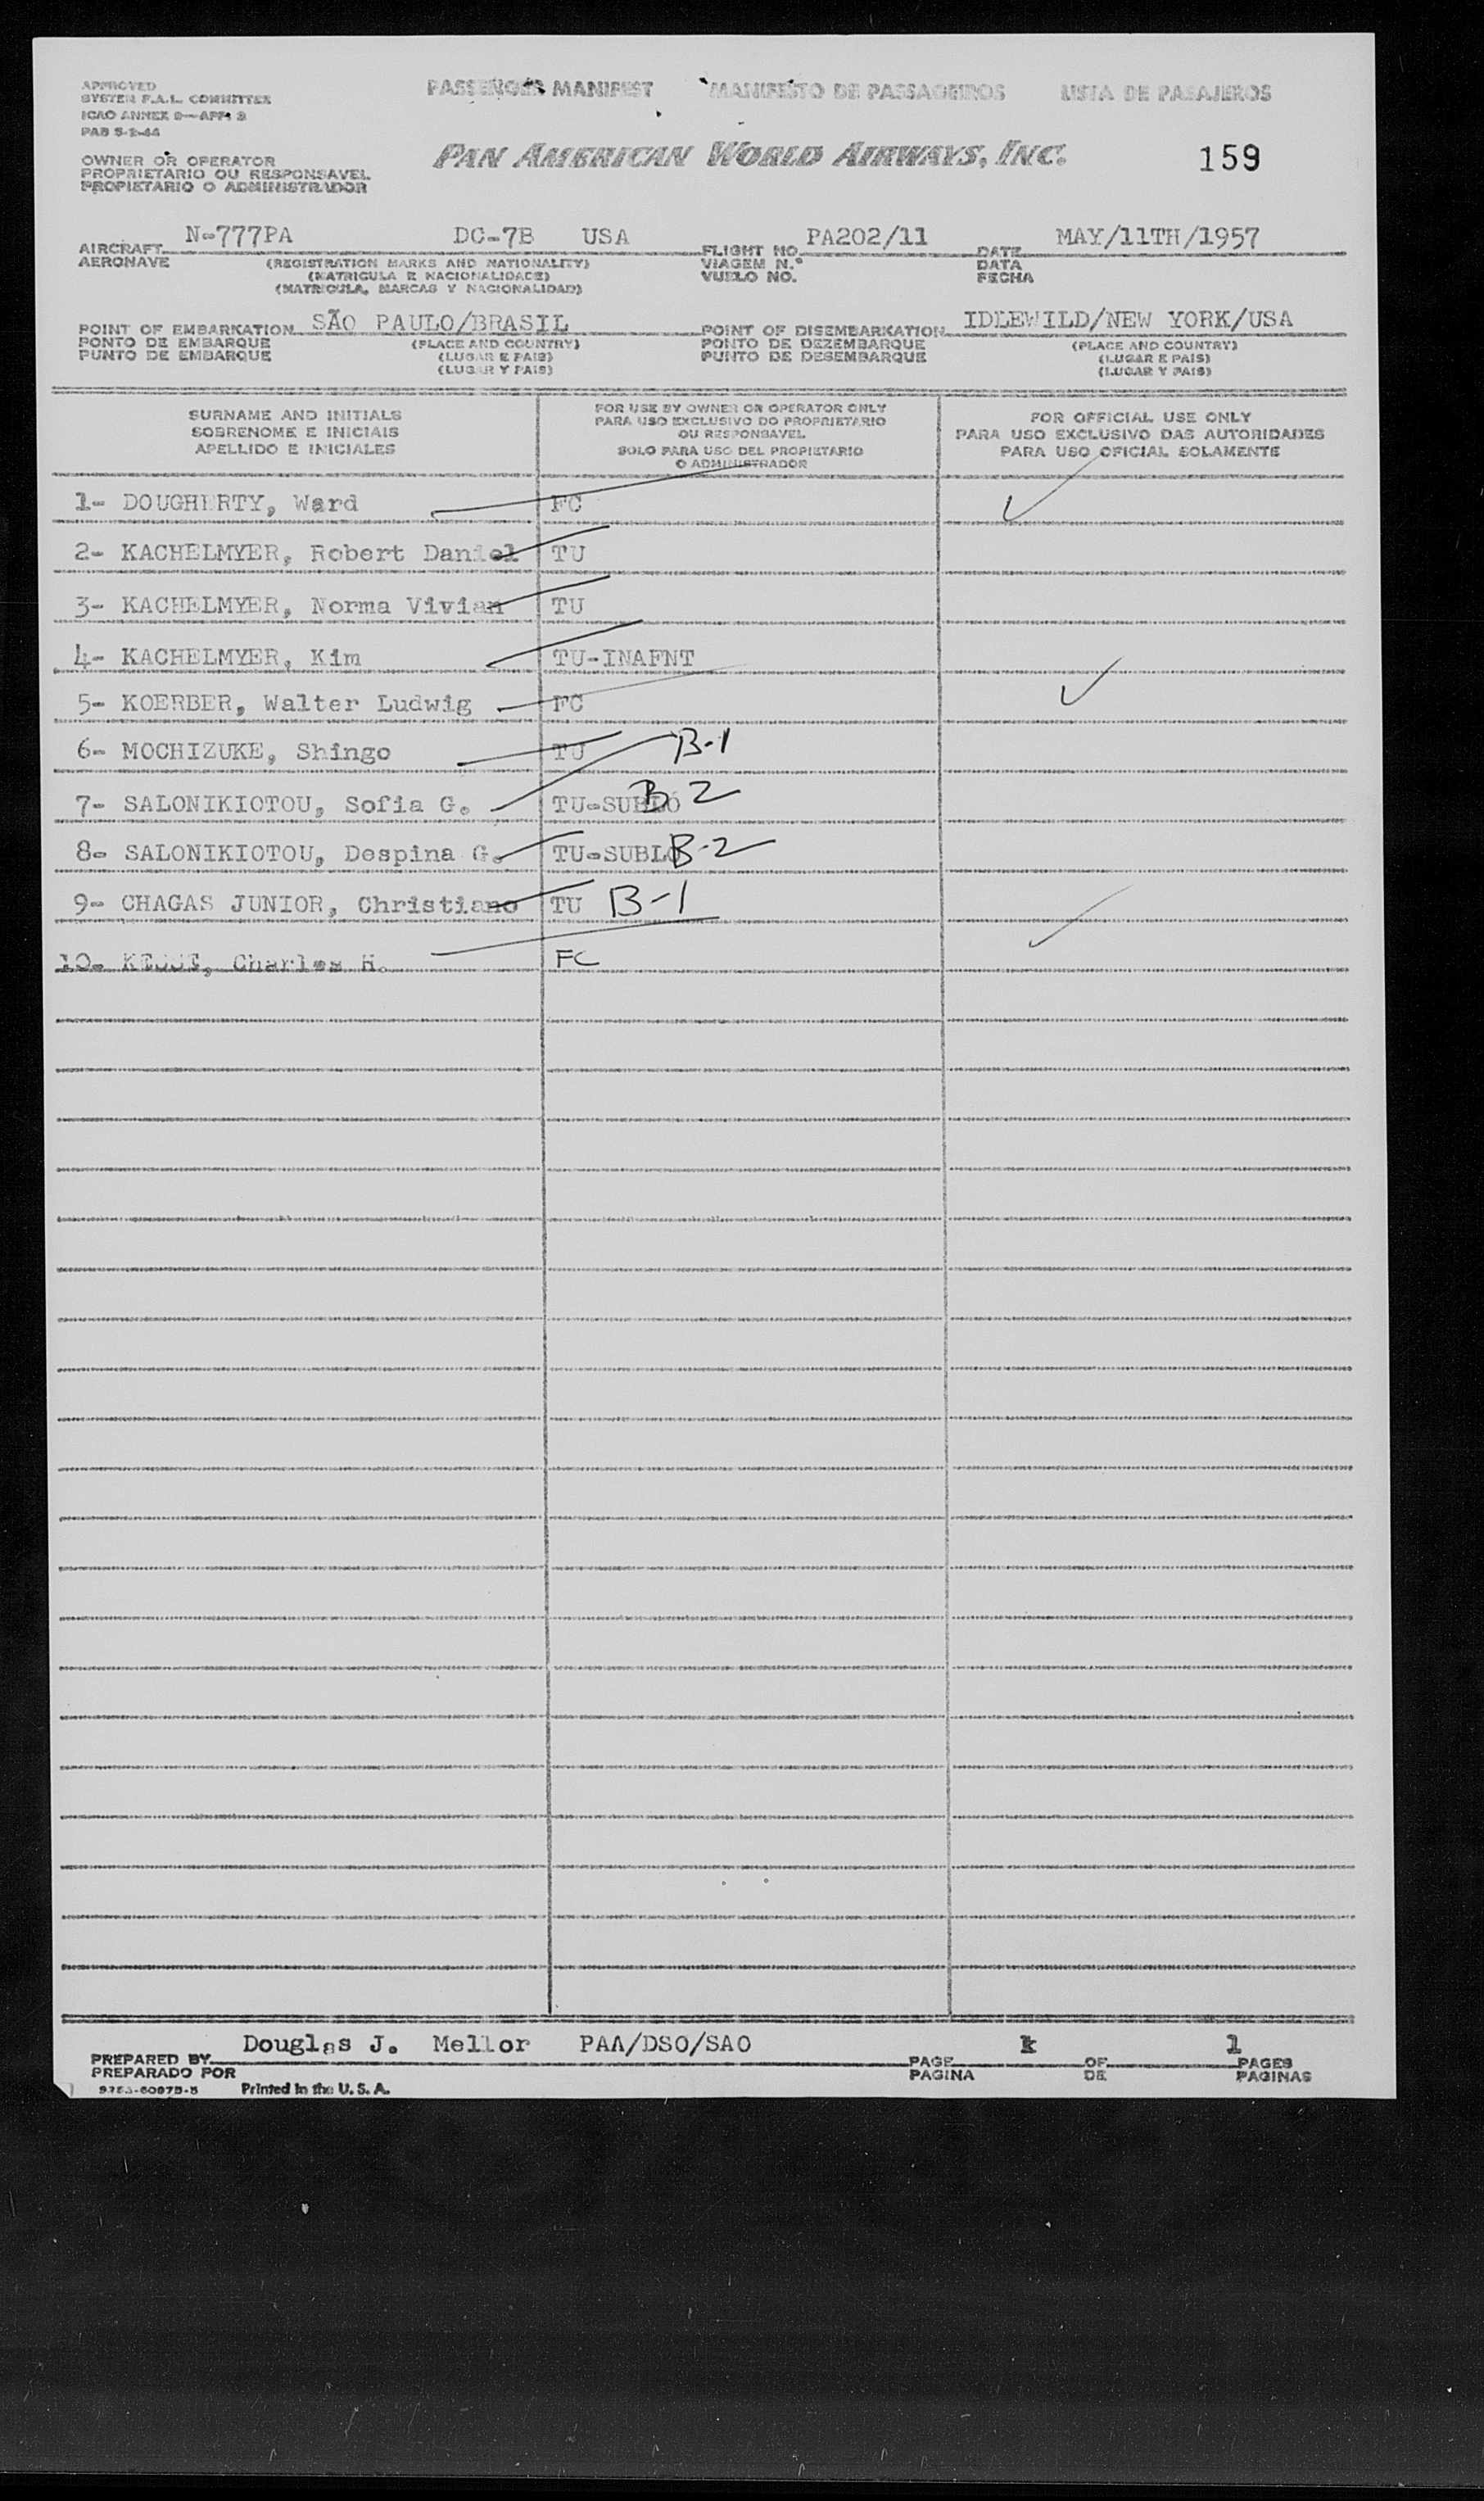 APPROVED
SYSTEM F.A.L. COMMITTEE
ICAO ANNEX 9—APP. 3
PAB 5-2-44
PASSENGER MANIFEST MANIFESTO DE PASSAGEIROS LISTA DE PASAJEROS
OWNER OR OPERATOR
PROPRIETARIO OU RESPONSAVEL
PROPIETARIO O ADMINISTRADOR
PAN AMERICAN WORLD AIRWAYS, INC. 159
AIRCRAFT N-777PA DC-7B USA FLIGHT NO. PA202/11 DATE MAY/11TH/1957
AERONAVE (REGISTRATION MARKS AND NATIONALITY) VIAGEM N.º DATA
(MATRICULA E NACIONALIDADE) VUELO NO. FECHA
(MATRICULA, MARCAS Y NACIONALIDAD)
POINT OF EMBARKATION SÃO PAULO/BRASIL POINT OF DISEMBARKATION IDLEWILD/NEW YORK/USA
PONTO DE EMBARQUE (PLACE AND COUNTRY) PONTO DE DEZEMBARQUE (PLACE AND COUNTRY)
PUNTO DE EMBARQUE (LUGAR E PAIS) PUNTO DE DESEMBARQUE (LUGAR E PAIS)
(LUGAR Y PAIS) (LUGAR Y PAIS)
SURNAME AND INITIALS
SOBRENOME E INICIAIS
APELLIDO E INICIALES
FOR USE BY OWNER OR OPERATOR ONLY
PARA USO EXCLUSIVO DO PROPRIETARIO
OU RESPONSAVEL
SOLO PARA USO DEL PROPIETARIO
O ADMINISTRADOR
FOR OFFICIAL USE ONLY
PARA USO EXCLUSIVO DAS AUTORIDADES
PARA USO OFICIAL SOLAMENTE
1- DOUGHERTY, Ward FC ✓
2- KACHELMYER, Robert Daniel TU
3- KACHELMYER, Norma Vivian TU
4- KACHELMYER, Kim TU-INAFNT
5- KOERBER, Walter Ludwig FC ✓
6- MOCHIZUKE, Shingo TU B-1
7- SALONIKIOTOU, Sofia G. TU-SUBLO B 2
8- SALONIKIOTOU, Despina G. TU-SUBLO B-2
9- CHAGAS JUNIOR, Christiano TU B-1
10- Charles H. FC ✓
PREPARED BY Douglas J. Mellor PAA/DSO/SAO PAGE OF 1 PAGES
PREPARADO POR PAGINA DE PAGINAS
Printed in the U. S. A.